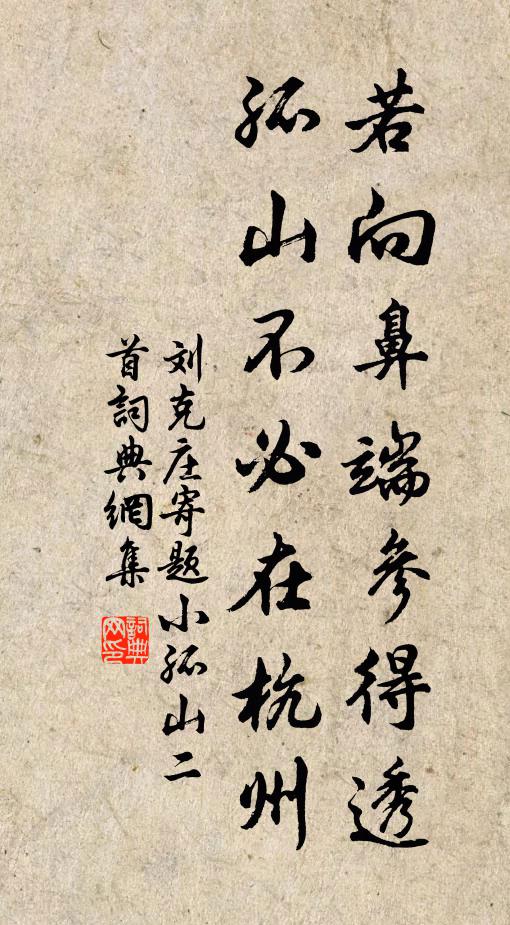 若向鼻端參得透
孤山不必在杭州
刘克庄寄题小孤山二
首詞典網集
詞典
网印